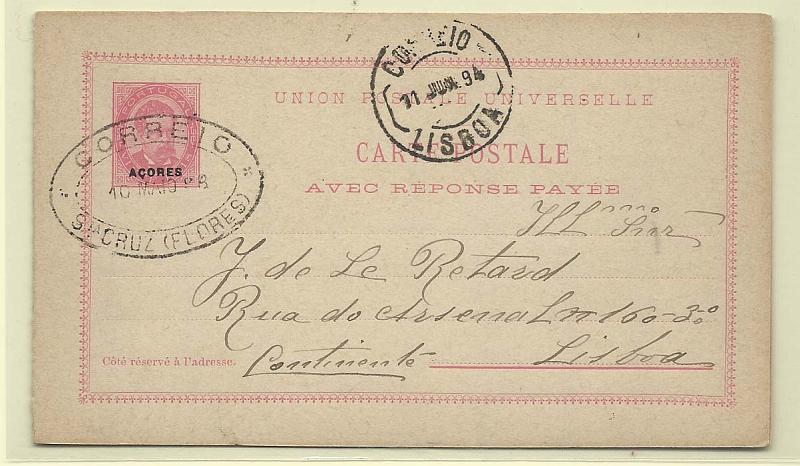 CORREIO
11 JUN. 94
LISBOA
UNION POSTALE UNIVERSELLE
CARTE POSTALE
AVEC RÉPONSE PAYÉE
PORTUGAL
AÇORES
CORREIO
10 MAIO
STA CRUZ (FLORES)
Illmo Snr
J. de Le Retord
Rua do Arsenal nº 160-3º
Continente Lisboa
Côté réservé à l'adresse.